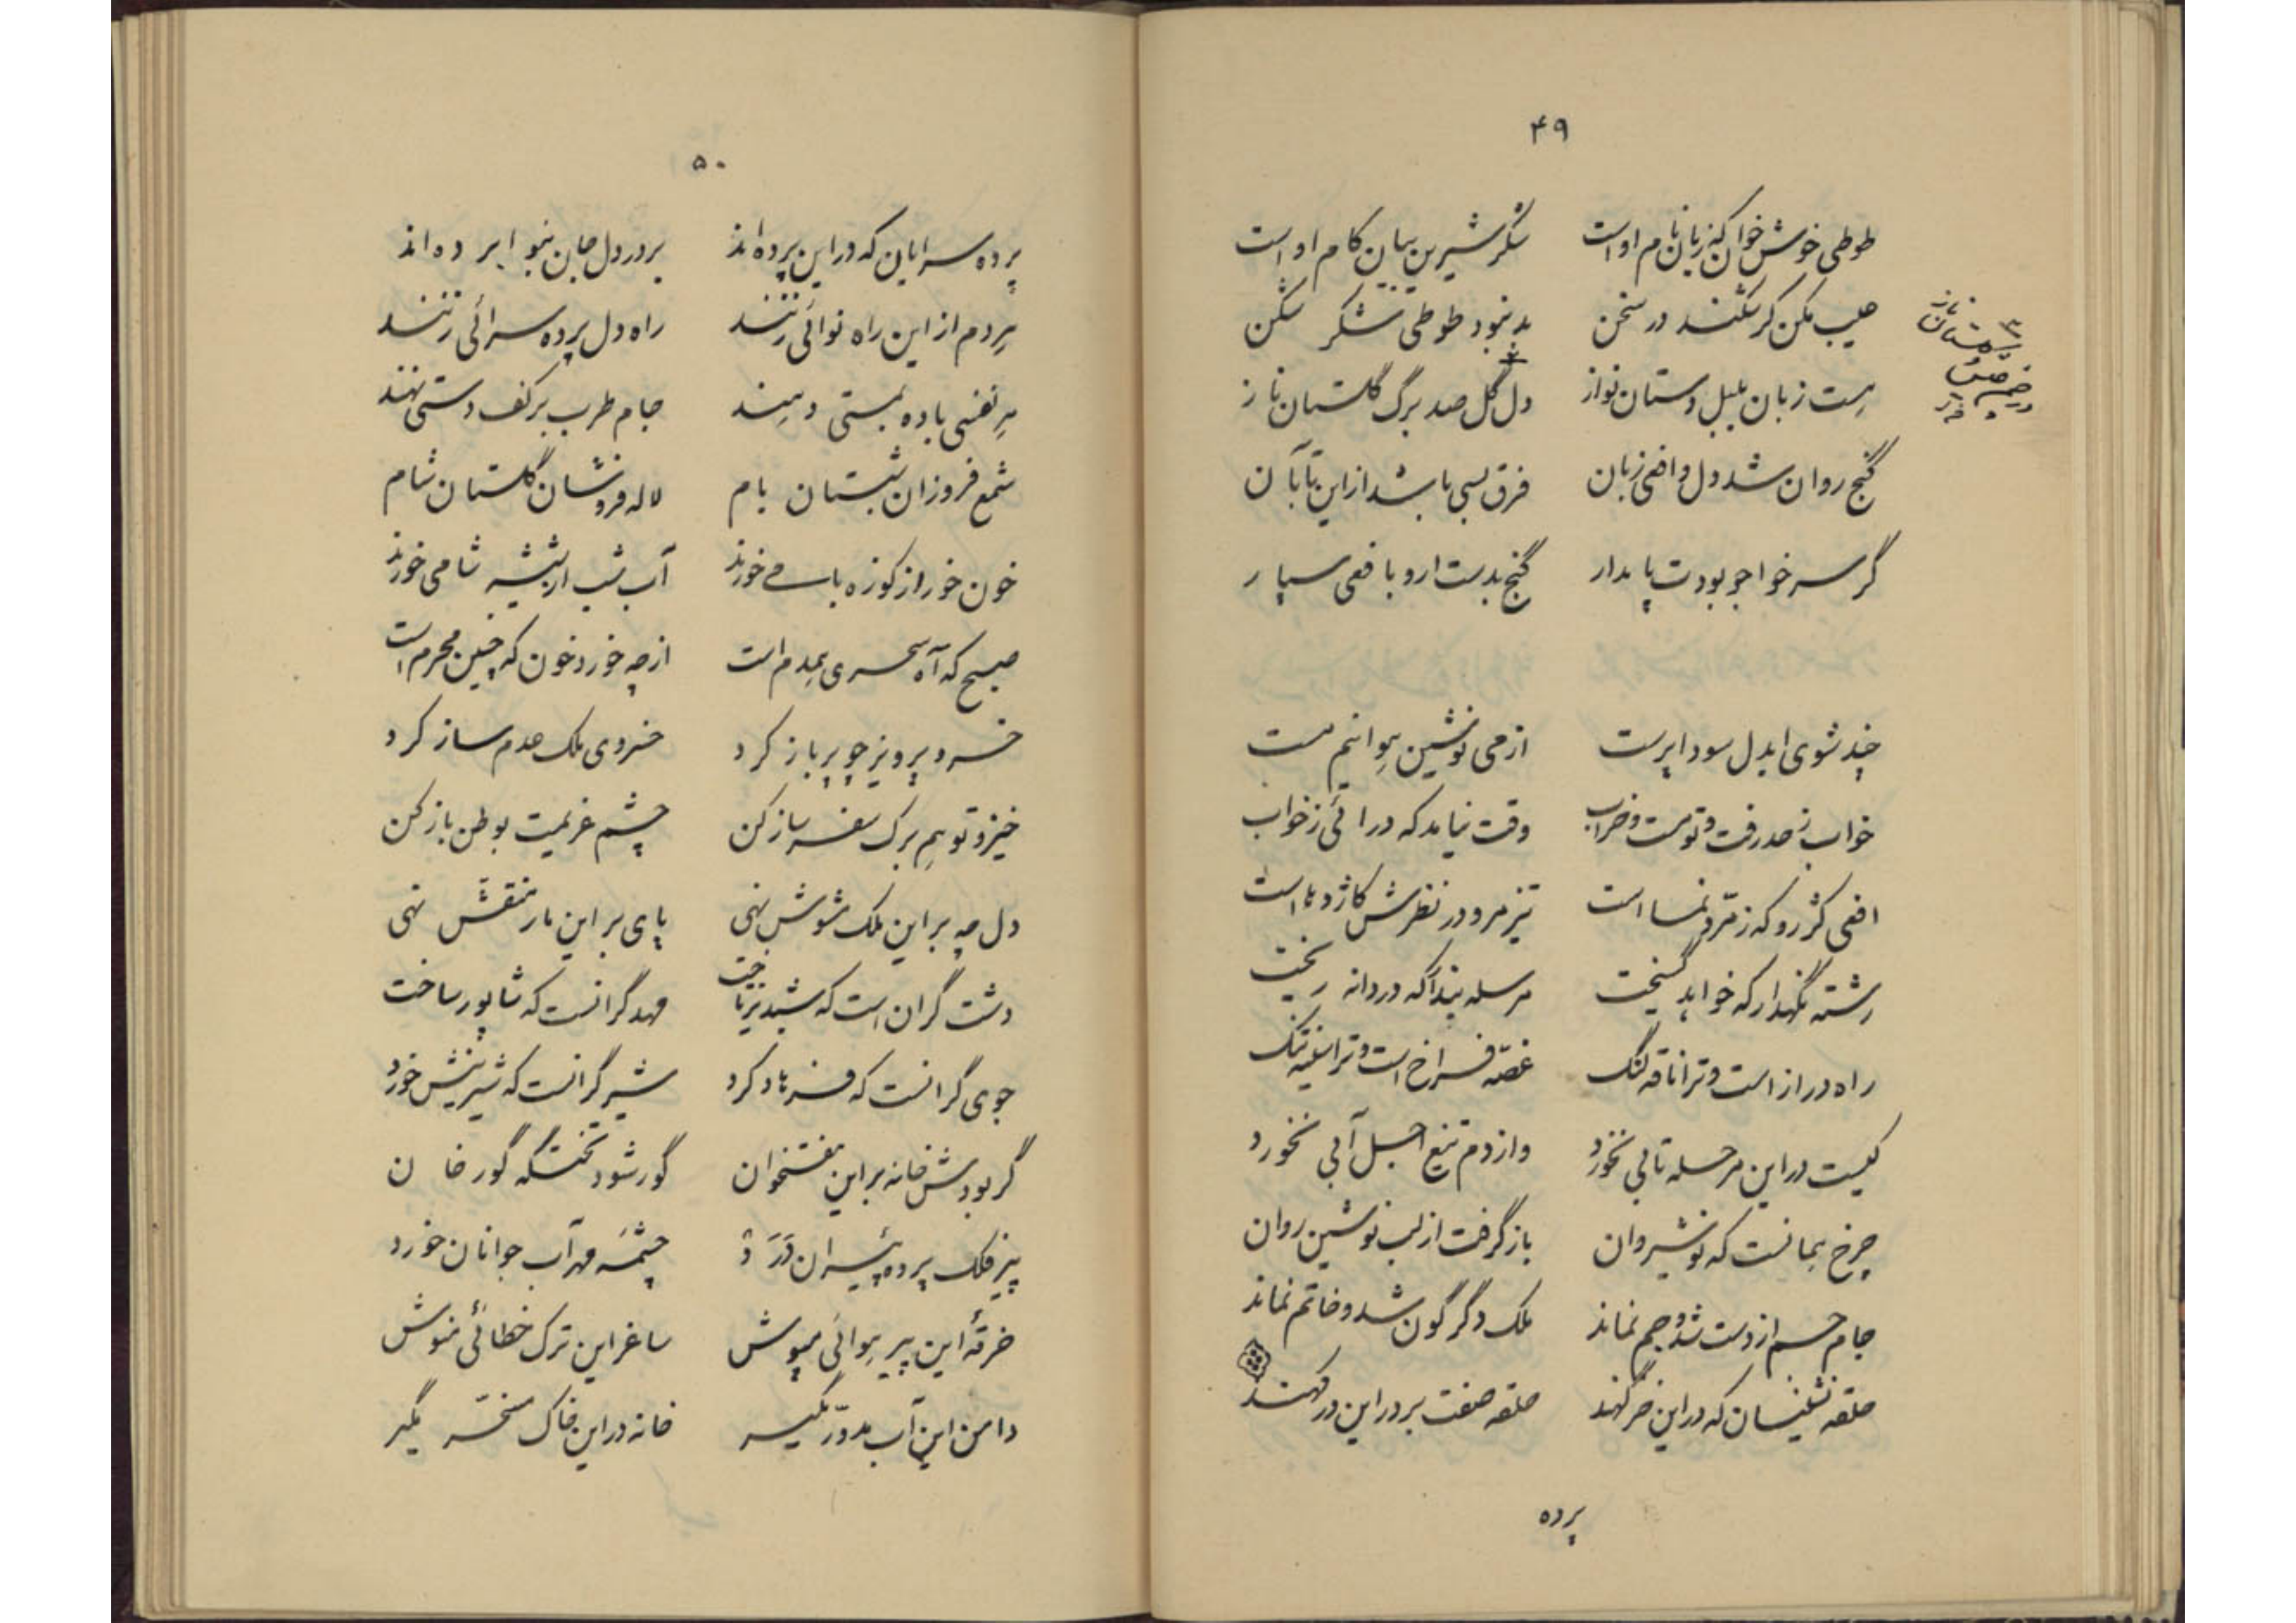 ۴۹
طوطی خوش خوان که زبان نام او است شکر شیرین بیان کام او است
عیب مکن گر شکند در سخن بد نبود طوطی شکر شکن
هست زبان بلبل دستان نواز دل گل صد برگ گلستان ناز
گنج روان شد دل و افعی زبان فرق بسی باشد از این تا بآن
گر سر خواجو بودت پایدار گنج بدست ار و بافعی سپار
چند شوی ایدل سودا پرست از می نوشین هوا نیم مست
خواب ز حد رفت و تو مست و خراب وقت نیامد که درائی ز خواب
افعی کژ رو که زمرد نما است تیز مرو در نظرش کاژدها است
رشته نگهدار که خواهد گسیخت مرسله بندا که دردانه ریخت
راه دراز است و ترا ناقه لنگ غصه فراخ است و ترا سینه تنگ
کیست در این مرحله تابی نخورد واز دم تیغ اجل آبی نخورد
چرخ همانست که نوشیروان باز گرفت از لب نوشین روان
جام جم از دست شد و جم نماند ملک دگرگون شد و خاتم نماند
حلقه نشینان که در این خرگهند حلقه صفت بر در این درگهند
پرده
۵۰
پرده سرایان که در این پرده‌اند بر در دل جان بنوا برده‌اند
هردم از این راه نوائی زنند راه دل پرده سرائی زنند
هر نفسی باده بمستی دهند جام طرب بر کف دستی نهند
شمع فروزان شبستان بام لاله فروشان گلستان شام
خون خور از کوزه بامی خورند آب شب از شیشه شامی خورند
صبح که آه سحری همدم است از چه خورد خون که چنین محرم است
خسرو پرویز چو پر باز کرد خسروی ملک عدم ساز کرد
خیز و تو هم برک سفر ساز کن چشم عزیمت بوطن باز کن
دل چه براین ملک مشوش نهی پای بر این مار منقش نهی
دشت گران است که شبدیز تاخت مهد گرانست که شاپور ساخت
جوی گرانست که فرهاد کرد شیر گرانست که شیرینش خورد
گر بودش خانه براین هفتخوان گور شود تختگه گور خان
پیر فلک پرده پیران درد چشمه مهر آب جوانان خورد
خرقه این پیر هوائی مپوش ساغر این ترک خطائی منوش
دامن این آب مدور مگیر خانه در این خاک مخمر مگیر